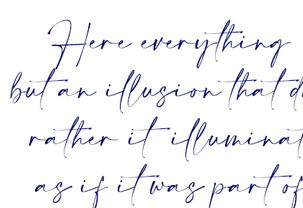 Here everything
but an illusion that d
rather it illuminat
as if it was part of